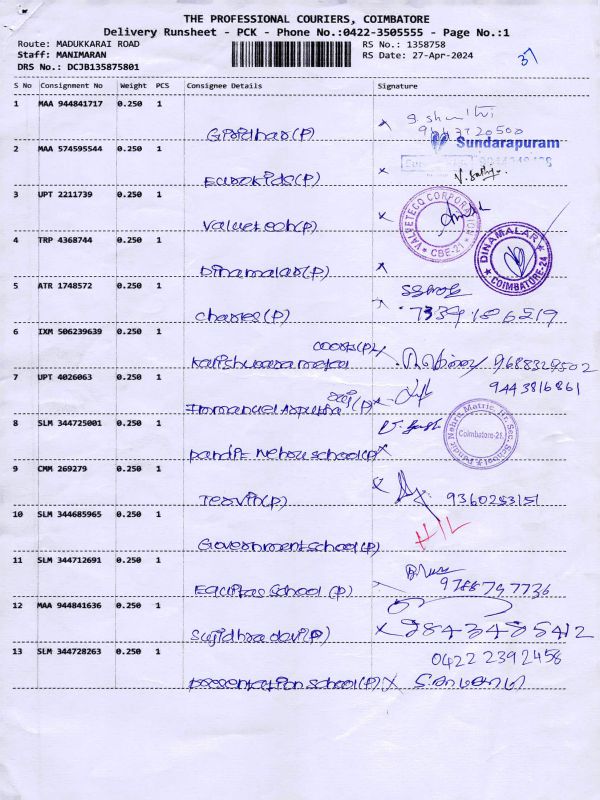 THE PROFESSIONAL COURIERS, COIMBATORE
Delivery Runsheet - PCK - Phone No.:0422-3505555 - Page No.:1
Route: MADUKKARAI ROAD RS No.: 1358758
Staff: MANIMARAN RS Date: 27-Apr-2024 37
DRS No.: DCJB135875801
S No Consignment No Weight PCS Consignee Details Signature
1 MAA 944841717 0.250 1
Giridhar(P)
2 MAA 574595544 0.250 1 Sundarapuram
Eurokids(P)
3 UPT 2211739 0.250 1
Valuetech(P) VALUETECQ CORPORATION CBE-21
4 TRP 4368744 0.250 1
Dinamalar(P) DINAMALAR COIMBATORE-24
5 ATR 1748572 0.250 1
Charles(P) 7339186219
6 IXM 506239639 0.250 1
works(P) 9688329502
7 UPT 4026063 0.250 1 9443816861
Immanuel (P)
8 SLM 344725001 0.250 1
Pandit Nehru school(P) Pandit Nehru Matric. Hr. Sec. School Coimbatore-21.
9 CMM 269279 0.250 1
(P) 9360253151
10 SLM 344685965 0.250 1 H/L
Government school(P)
11 SLM 344712691 0.250 1
Equitas School (P) 9788797736
12 MAA 944841636 0.250 1
Sujidhra devi(P) 9843485412
13 SLM 344728263 0.250 1 0422 2392458
Presentation school(P)